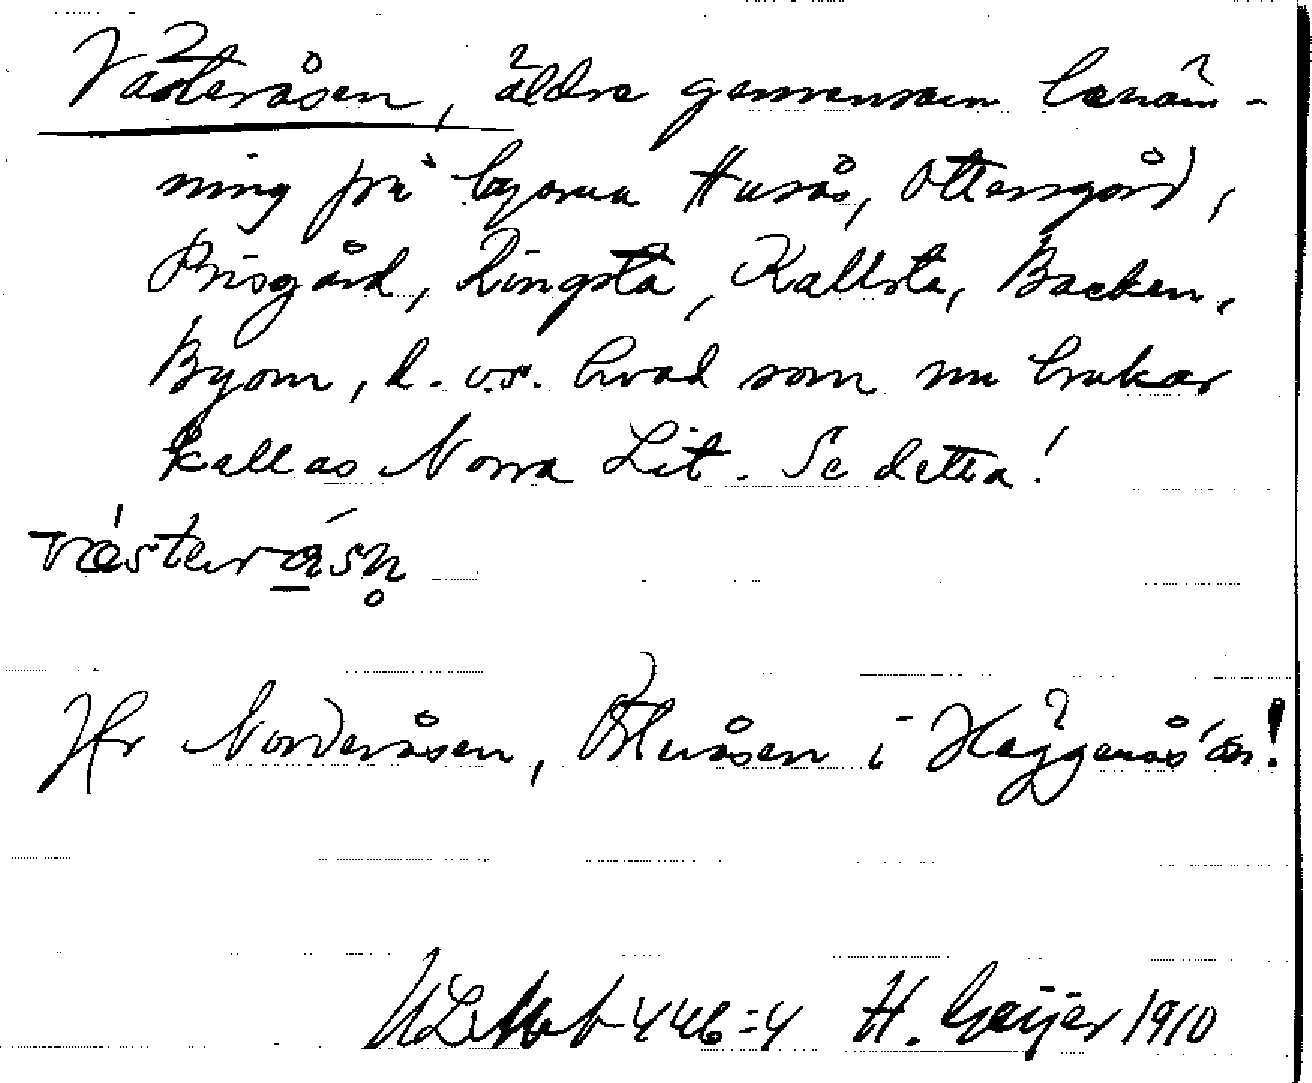 Västeråsen, äldre gemensam benäm-
ning på byarna Husås, Ottersgård,
Brisgård, Ringsta, Kallsta, Backen,
Byom, d. v.s. hvad som nu brukar
kallas Norra Lit. Se detta!
væsterásn̥
Jfr Norderåsen, i Häggenås'sn!
446:4 H. Geijer 1910